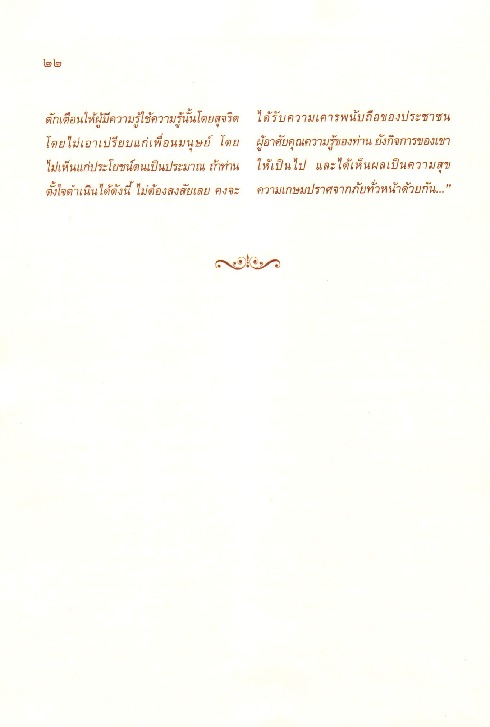 ๒๒
ตักเตือนให้ผู้มีความรู้ใช้ความรู้นั้นโดยสุจริต
โดยไม่เอาเปรียบแก่เพื่อนมนุษย์ โดย
ไม่เห็นแก่ประโยชน์ตนเป็นประมาณ ถ้าท่าน
ตั้งใจดำเนินได้ดังนี้ ไม่ต้องสงสัยเลย คงจะ
ได้รับความเคารพนับถือของประชาชน
ผู้อาศัยคุณความรู้ของท่าน ยังกิจการของเขา
ให้เป็นไป และได้เห็นผลเป็นความสุข
ความเกษมปราศจากภัยทั่วหน้าด้วยกัน..."